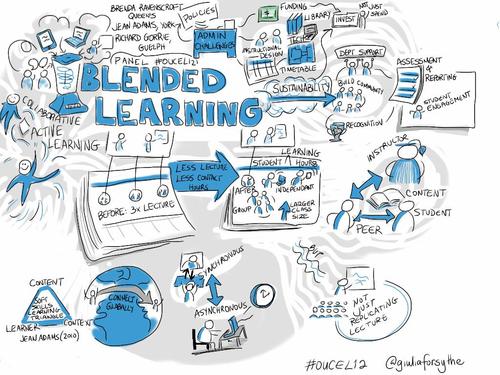 BRENDA RAVENSCROFT
QUEENS
JEAN ADAMS, YORK
RICHARD GORRIE,
GUELPH
PANEL #OUCEL12
POLICIES
ADMIN
CHALLENGES
FUNDING
LIBRARY
TECH
INSTRUCTIONAL
DESIGN
TIMETABLE
INVEST
NOT JUST
SPEND
DEPT SUPPORT
BUILD COMMUNITY
RECOGNITION
ASSESSMENT
&
REPORTING
STUDENT
ENGAGEMENT
BLENDED
LEARNING
SUSTAINABILITY
COLLABORATIVE
ACTIVE
LEARNING
BEFORE: 3x LECTURE
LESS LECTURE
LESS CONTACT
HOURS
LEARNING
STUDENT HOURS
AFTER
INDEPENDANT
GROUP
LARGER
CLASS
SIZE
INSTRUCTOR
CONTENT
STUDENT
PEER
CONTENT
SOFT
SKILLS
LEARNING
TRIANGLE
LEARNER
CONTEXT
JEAN ADAMS (2010)
CONNECT
GLOBALLY
SYNCHRONOUS
ASYNCHRONOUS
BUT
NOT
JUST
REPLICATING
LECTURE
#OUCEL12
@giuliaforsythe